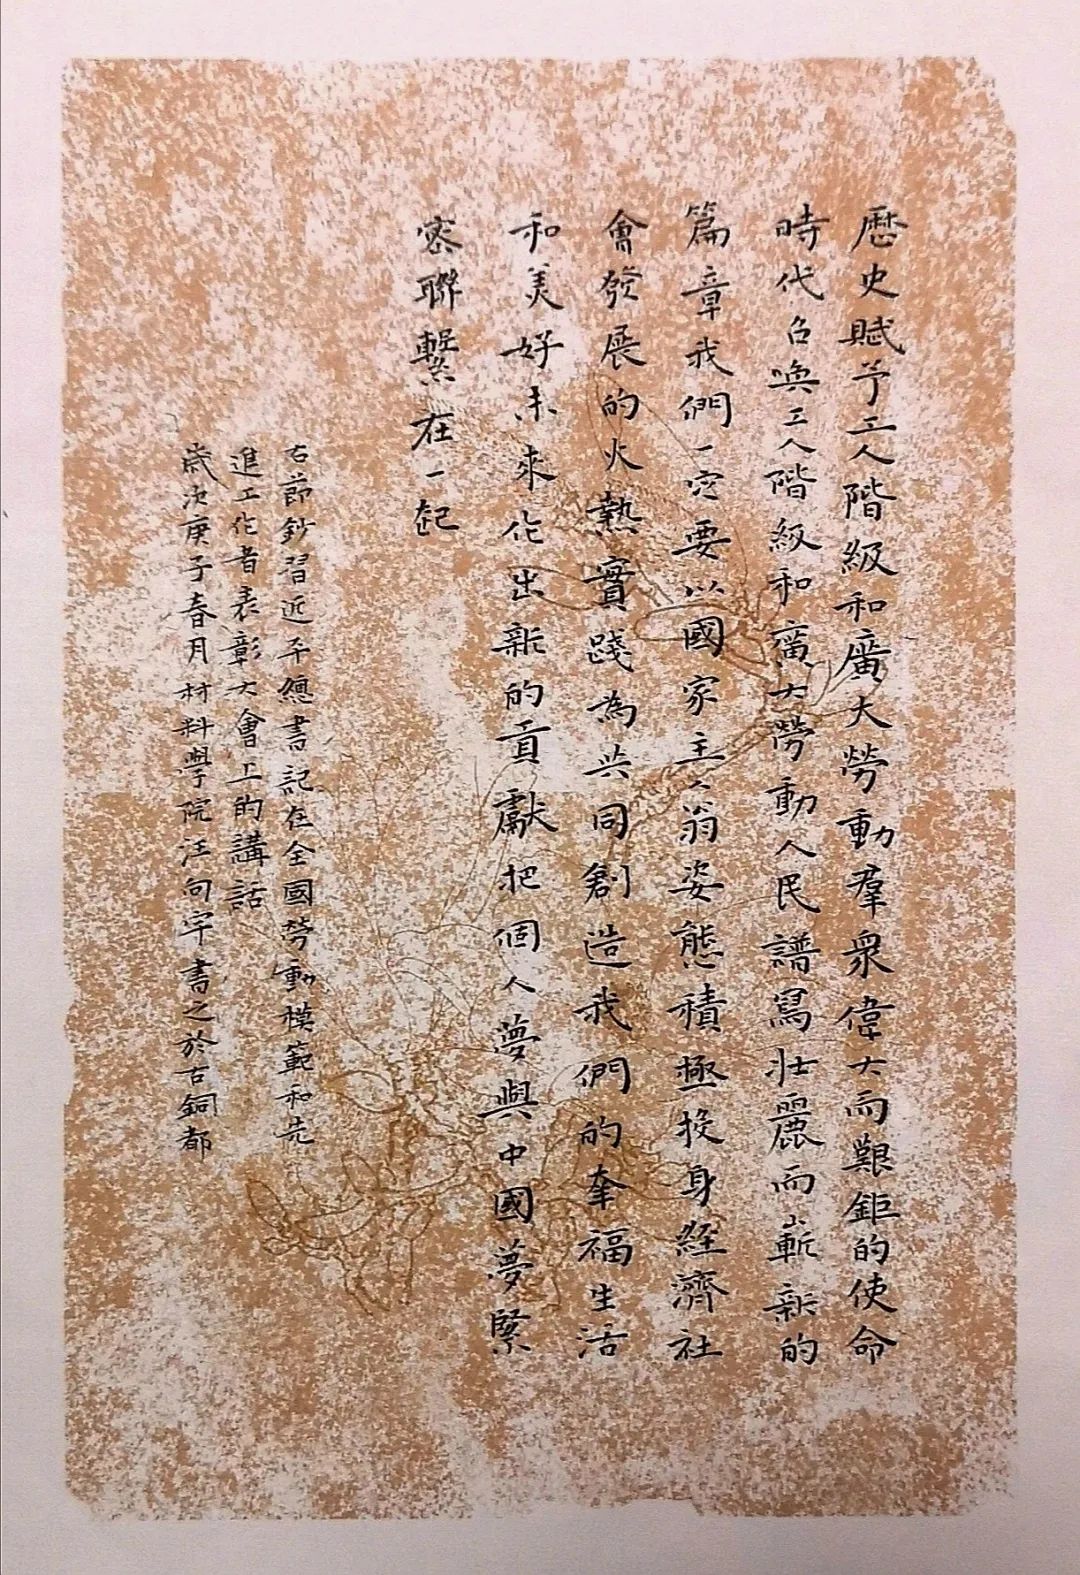 歷史賦予工人階級和廣大勞動羣衆偉大而艱鉅的使命
時代召喚工人階級和廣大勞動人民譜寫壯麗而嶄新的
篇章我們一定要以國家主人翁姿態積極投身經濟社
會發展的火熱實踐為共同創造我們的幸福生活
和美好未來作出新的貢獻把個人夢與中國夢緊
密聯繫在一起
右節鈔習近平總書記在全國勞動模範和先
進工作者表彰大會上的講話
歲次庚子春月材料學院汪向宇書之於古銅都